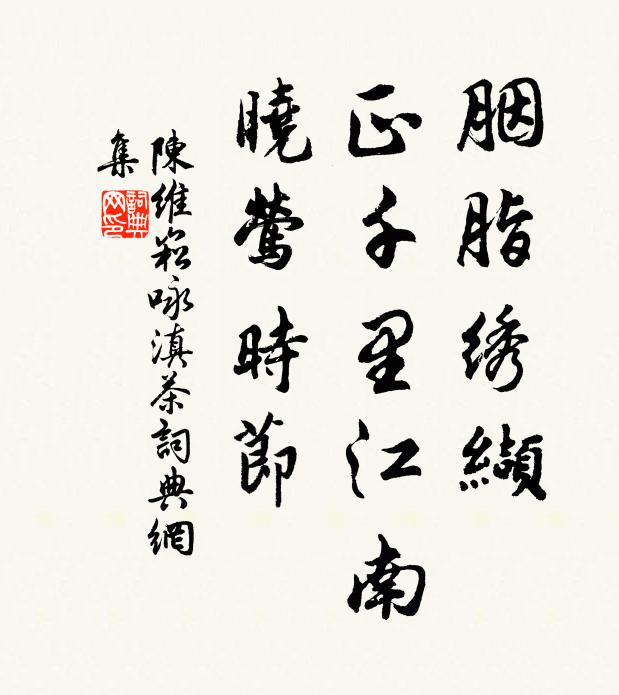 胭脂绣纈
正千里江南
曉鶯時節
陳維崧咏滇茶詞典網
集
詞典網印